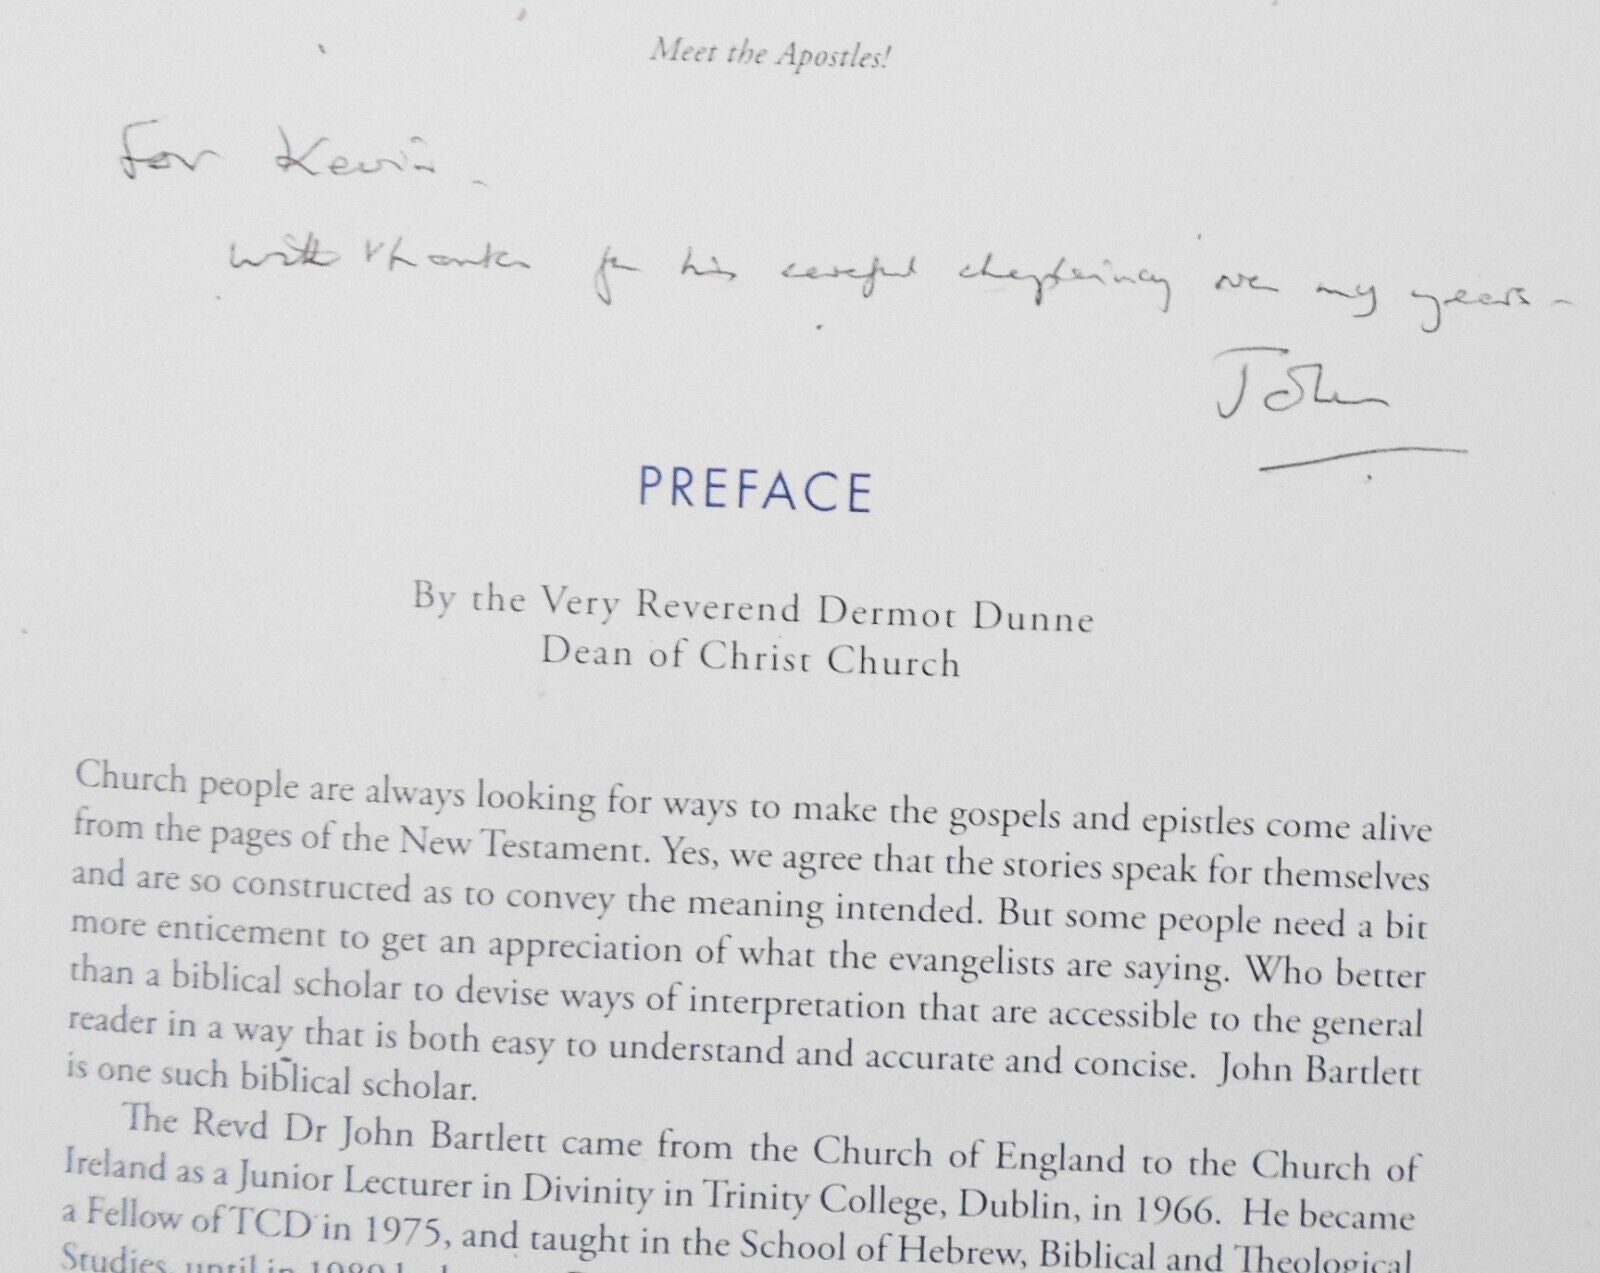 Meet the Apostles!
For Kevin -
with thanks for his careful chaplaincy over my years -
John
PREFACE
By the Very Reverend Dermot Dunne
Dean of Christ Church
Church people are always looking for ways to make the gospels and epistles come alive
from the pages of the New Testament. Yes, we agree that the stories speak for themselves
and are so constructed as to convey the meaning intended. But some people need a bit
more enticement to get an appreciation of what the evangelists are saying. Who better
than a biblical scholar to devise ways of interpretation that are accessible to the general
reader in a way that is both easy to understand and accurate and concise. John Bartlett
is one such biblical scholar.
The Revd Dr John Bartlett came from the Church of England to the Church of
Ireland as a Junior Lecturer in Divinity in Trinity College, Dublin, in 1966. He became
a Fellow of TCD in 1975, and taught in the School of Hebrew, Biblical and Theological
Studies, until in 1989